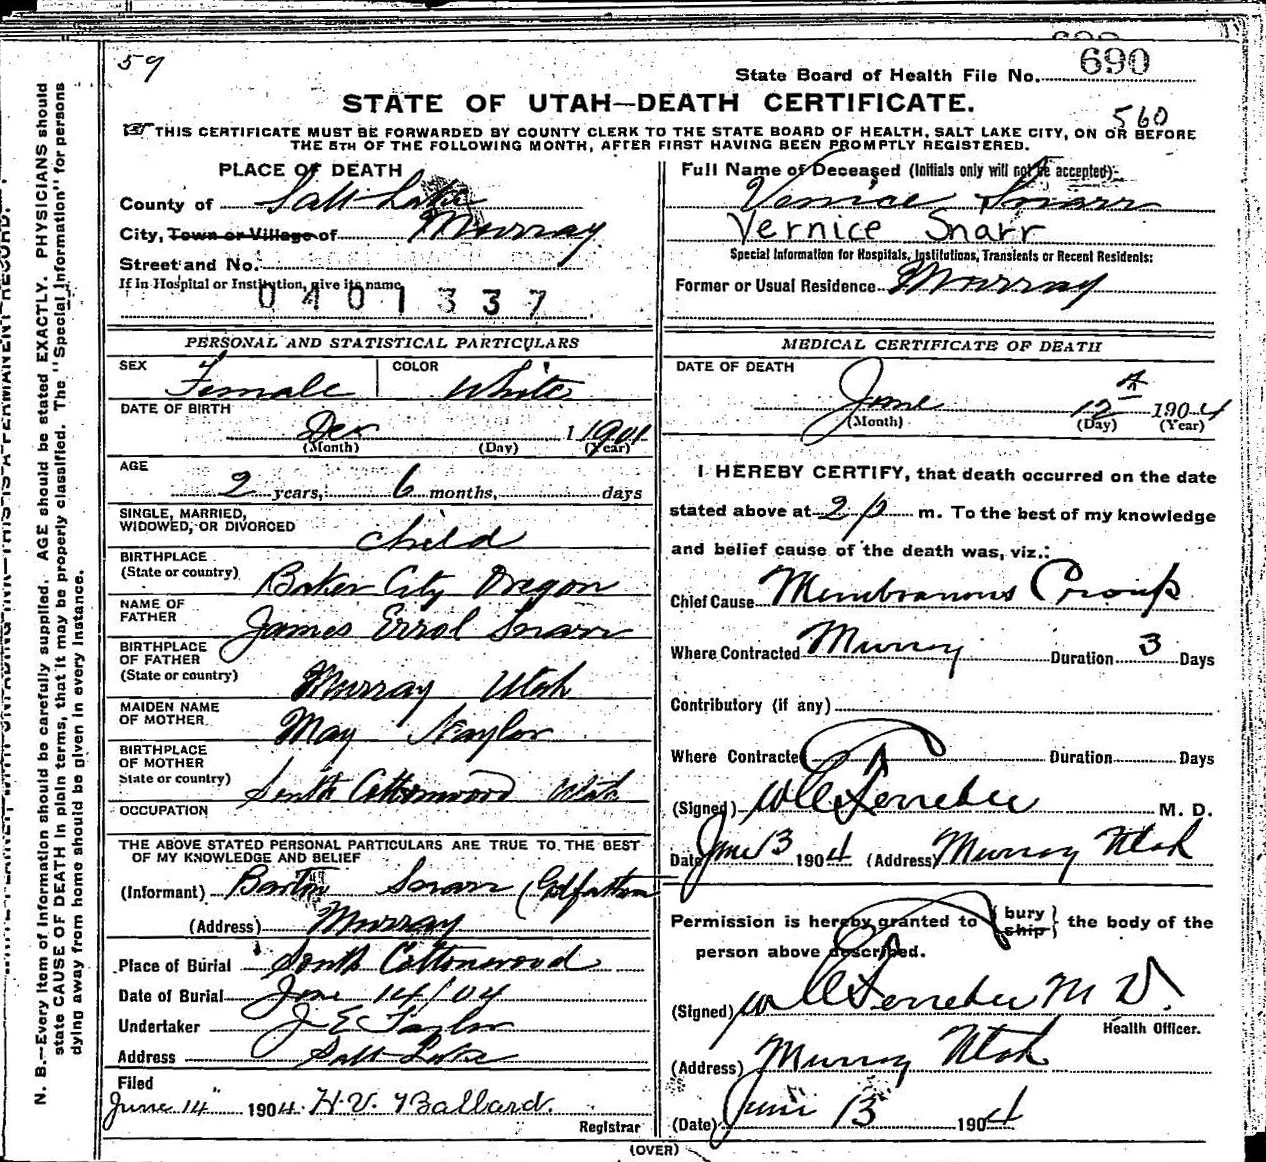 59
690
State Board of Health File No. 690
STATE OF UTAH—DEATH CERTIFICATE.
560
THIS CERTIFICATE MUST BE FORWARDED BY COUNTY CLERK TO THE STATE BOARD OF HEALTH, SALT LAKE CITY, ON OR BEFORE
THE 5TH OF THE FOLLOWING MONTH, AFTER FIRST HAVING BEEN PROMPTLY REGISTERED.
PLACE OF DEATH
County of Salt Lake
City, Town or Village of Murray
Street and No.
If in Hospital or Institution, give its name
0401337
Full Name of Deceased (Initials only will not be accepted)
Venice Snarr
Vernice Snarr
Special Information for Hospitals, Institutions, Transients or Recent Residents:
Former or Usual Residence Murray
PERSONAL AND STATISTICAL PARTICULARS
SEX Female COLOR White
DATE OF BIRTH
Dec 1 1901
(Month) (Day) (Year)
AGE
2 years, 6 months, days
SINGLE, MARRIED,
WIDOWED, OR DIVORCED child
BIRTHPLACE
(State or country) Baker City Oregon
NAME OF
FATHER James Errol Snarr
BIRTHPLACE
OF FATHER
(State or country) Murray Utah
MAIDEN NAME
OF MOTHER May Naylor
BIRTHPLACE
OF MOTHER
State or country) South Cottonwood Utah
OCCUPATION
THE ABOVE STATED PERSONAL PARTICULARS ARE TRUE TO THE BEST
OF MY KNOWLEDGE AND BELIEF
(Informant) Barton Snarr (Gdfather
(Address) Murray
Place of Burial South Cottonwood
Date of Burial June 14/04
Undertaker J E Taylor
Address Salt Lake
Filed
June 14" 1904. H.V. Ballard.
Registrar
MEDICAL CERTIFICATE OF DEATH
DATE OF DEATH
June 12 1904
(Month) (Day) (Year)
I HEREBY CERTIFY, that death occurred on the date
stated above at 2 p m. To the best of my knowledge
and belief cause of the death was, viz.:
Chief Cause Membranous Croup
Where Contracted Murray Duration 3 Days
Contributory (if any)
Where Contracted Duration Days
(Signed) M. D.
Date June 13 1904 (Address) Murray Utah
Permission is hereby granted to { bury
ship } the body of the
person above described.
(Signed) M D.
Health Officer.
(Address) Murray Utah
(Date) June 13 1904
(OVER)
N. B.—Every item of information should be carefully supplied. AGE should be stated EXACTLY. PHYSICIANS should
state CAUSE OF DEATH in plain terms, that it may be properly classified. The "Special Information" for persons
dying away from home should be given in every instance.